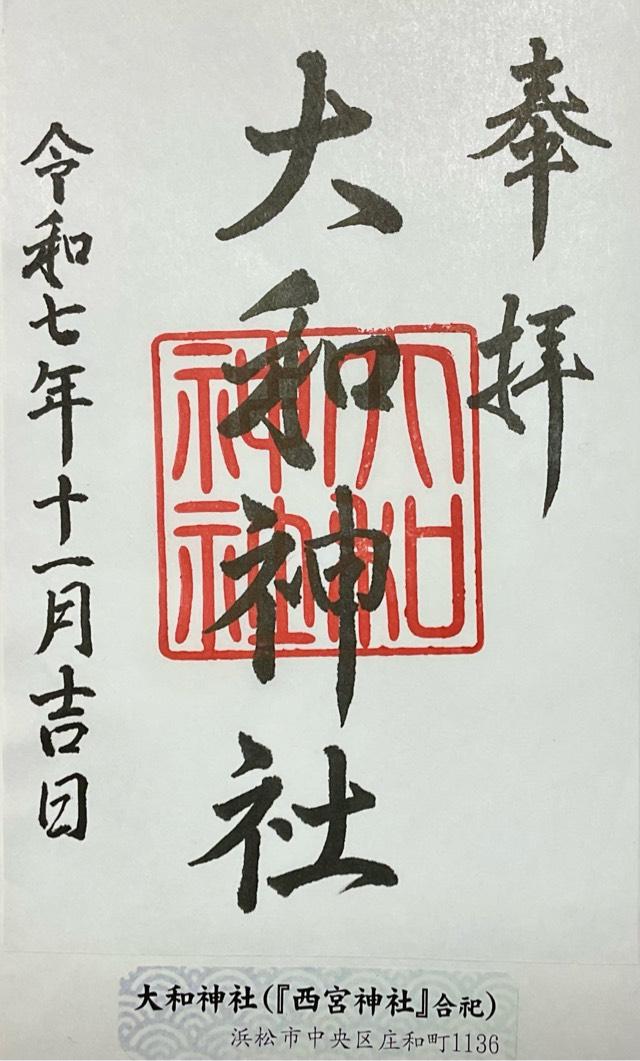 奉拝
大和神社
大和神社
令和七年十一月吉日
大和神社(『西宮神社』合祀)
浜松市中央区庄和町1136